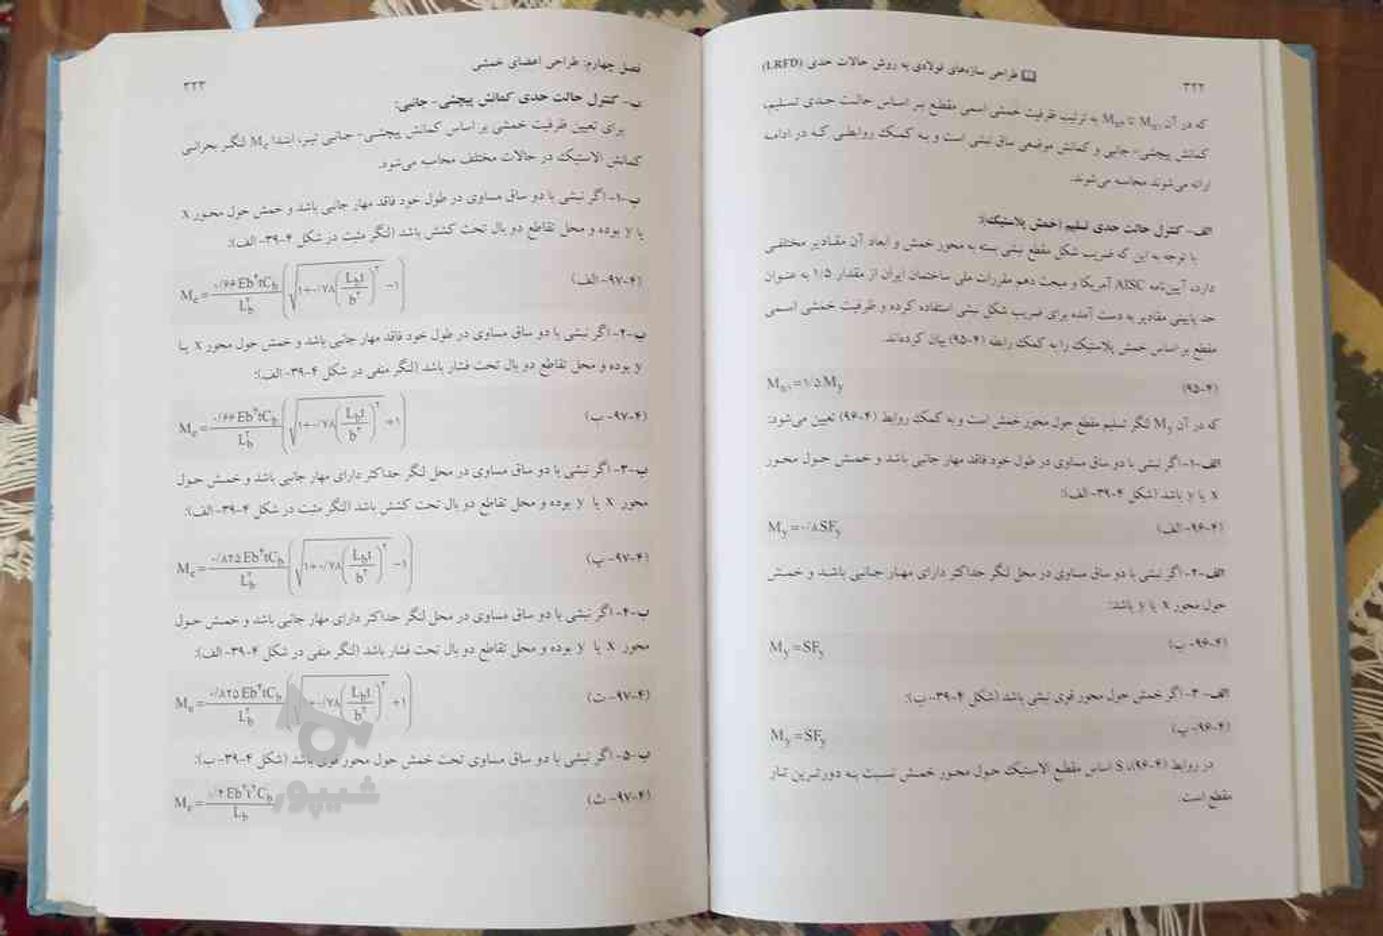 ۳۲۲ طراحی سازه‌های فولادی به روش حالات حدی (LRFD)
که در آن Mn۱ تا Mn۳ به ترتیب ظرفیت خمشی اسمی مقطع بر اساس حالت حدی تسلیم،
کمانش پیچشی- جانبی و کمانش موضعی ساق نبشی است و به کمک روابطی که در ادامه
ارائه می‌شوند محاسبه می‌شوند.
الف- کنترل حالت حدی تسلیم (خمش پلاستیک):
با توجه به این که ضریب شکل مقطع نبشی بسته به محور خمش و ابعاد آن مقادیر مختلفی
دارد، آیین‌نامه AISC آمریکا و مبحث دهم مقررات ملی ساختمان ایران از مقدار ۱/۵ به عنوان
حد پایینی مقادیر به دست آمده برای ضریب شکل نبشی استفاده کرده و ظرفیت خمشی اسمی
مقطع بر اساس خمش پلاستیک را به کمک رابطه (۴-۹۵) بیان کرده‌اند.
Mn۱=۱/۵My (۴-۹۵)
که در آن My لنگر تسلیم مقطع حول محور خمش است و به کمک روابط (۴-۹۶) تعیین می‌شود:
الف-۱- اگر نبشی با دو ساق مساوی در طول خود فاقد مهار جانبی باشد و خمش حول محور
x یا y باشد (شکل ۴-۳۹- الف):
My=۰/۸SFy (۴-۹۶- الف)
الف-۲- اگر نبشی با دو ساق مساوی در محل لنگر حداکثر دارای مهار جانبی باشد و خمش
حول محور x یا y باشد:
My=SFy (۴-۹۶- ب)
الف-۳- اگر خمش حول محور قوی نبشی باشد (شکل ۴-۳۹- ب):
My=SFy (۴-۹۶- پ)
در روابط (۴-۹۶)، S اساس مقطع الاستیک حول محور خمش نسبت به دورترین تار
مقطع است.
فصل چهارم: طراحی اعضای خمشی ۳۲۳
ب- کنترل حالت حدی کمانش پیچشی- جانبی:
برای تعیین ظرفیت خمشی بر اساس کمانش پیچشی- جانبی تیر، ابتدا Me لنگر بحرانی
کمانش الاستیک در حالات مختلف محاسبه می‌شود.
ب-۱- اگر نبشی با دو ساق مساوی در طول خود فاقد مهار جانبی باشد و خمش حول محور x
یا y بوده و محل تقاطع دو بال تحت کشش باشد (لنگر مثبت در شکل ۴-۳۹- الف):
Me = ۰/۶۶Eb⁴tCb / Lb² (√(۱+۰/۷۸(Lbt/b²)²) −۱) (۴-۹۷- الف)
ب-۲- اگر نبشی با دو ساق مساوی در طول خود فاقد مهار جانبی باشد و خمش حول محور x یا
y بوده و محل تقاطع دو بال تحت فشار باشد (لنگر منفی در شکل ۴-۳۹- الف):
Me = ۰/۶۶Eb⁴tCb / Lb² (√(۱+۰/۷۸(Lbt/b²)²) +۱) (۴-۹۷- ب)
ب-۳- اگر نبشی با دو ساق مساوی در محل لنگر حداکثر دارای مهار جانبی باشد و خمش حول
محور x یا y بوده و محل تقاطع دو بال تحت کشش باشد (لنگر مثبت در شکل ۴-۳۹- الف):
Me = ۰/۸۲۵Eb⁴tCb / Lb² (√(۱+۰/۷۸(Lbt/b²)²) −۱) (۴-۹۷- پ)
ب-۴- اگر نبشی با دو ساق مساوی در محل لنگر حداکثر دارای مهار جانبی باشد و خمش حول
محور x یا y بوده و محل تقاطع دو بال تحت فشار باشد (لنگر منفی در شکل ۴-۳۹- الف):
Me = ۰/۸۲۵Eb⁴tCb / Lb² (√(۱+۰/۷۸(Lbt/b²)²) +۱) (۴-۹۷- ت)
ب-۵- اگر نبشی با دو ساق مساوی تحت خمش حول محور قوی باشد (شکل ۴-۳۹- ب):
Me = Eb²t²Cb / Lb (۴-۹۷- ث)
شیپور